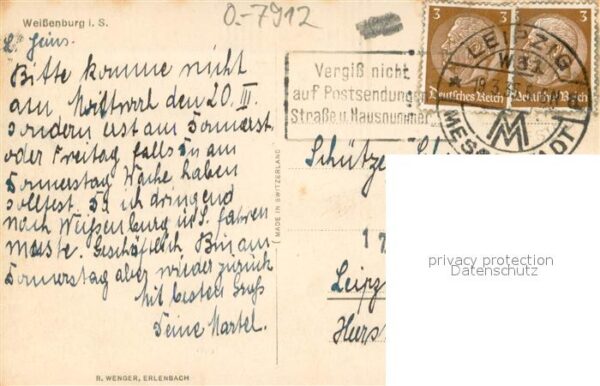 Weißenburg i. S.
O-7912
L. Heins.
Bitte komme nicht
am Mittwoch den 20. III.
sondern erst am Donnerst.
oder Freitag falls Du am
Donnerstag Wache haben
solltest. Da ich dringend
nach Weißenburg i/S. fahren
musste. Geschäftlich. Bin am
Donnerstag aber wieder zurück
Mit besten Gruß
Deine Martel.
B. WENGER, ERLENBACH
MADE IN SWITZERLAND
Vergiß nicht
auf Postsendungen
Straße u. Hausnummer
3 3
Deutsches Reich Deutsches Reich
LEIPZIG
W 31
MM
MESSESTADT
Schütze
17
Leipz
privacy protection
Datenschutz